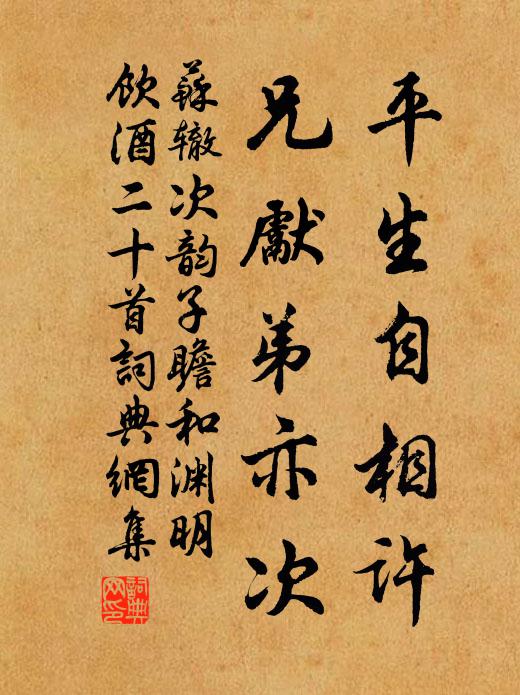 平生自相許
兄獻弟亦次
蘇辙次韵子瞻和渊明
飲酒二十首詞典網集